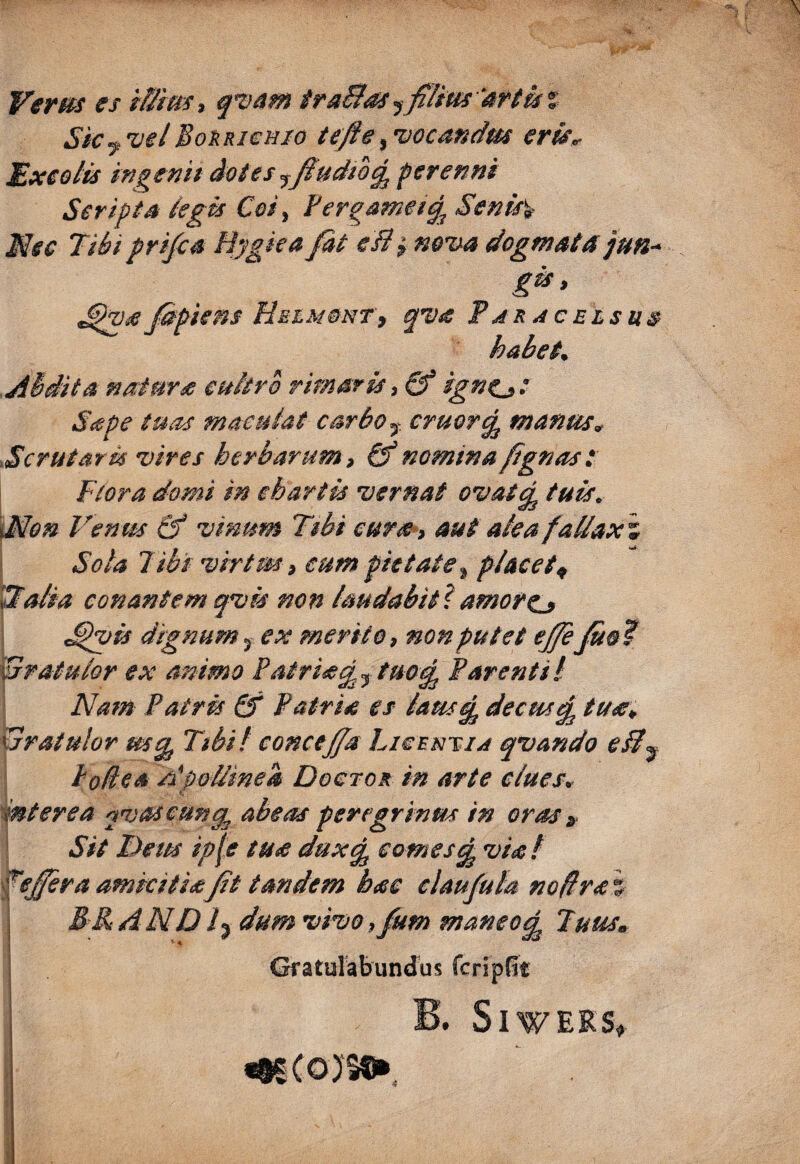 Verus es illius, qvam tractas, filius artis:
Sic, vel Borrichio teste, vocandus eris.
Excolis ingenii dotes, studioq; perenni
Scripta legis Coi, Pergameiq; Senis;
Nec Tibi prisca Hygiea sat est; nova dogmata jun-
gis,
Qvæ sapiens Helmont, qvæ Paracelsus
habet.
Abdita naturæ cultrô rimaris, & igne:
Sæpe tuas maculat carbo, cruorq; manus.
Scrutaris vires herbarum, & nomina signas:
Flora domi in chartis vernat ovatq; tuis.
Non Venus & vinum Tibi curæ, aut alea fallax:
Sola Tibi virtus, cum pietate, placet.
Talia conantem qvis non laudabit? amore
Qvis dignum, ex merito, non putet esse suo?
Gratulor ex animo Patriæq;, tuoq; Parenti!
Nam Patris & Patriæ es lausq; decusq; tuæ.
Gratulor usq; Tibi! concessa Licentia qvando est,
Postea Apollineâ Doctor in arte clues.
Interea qvascunq; abeas peregrinus in oras,
Sit Deus ipse tuæ duxq; comesq; viæ!
Tessera amicitiæ sit tandem hæc clausula nostræ:
BRANDI, dum vivo, sum maneoq; Tuus.
Gratulabundus scripsit
B. Siwers.
(o)